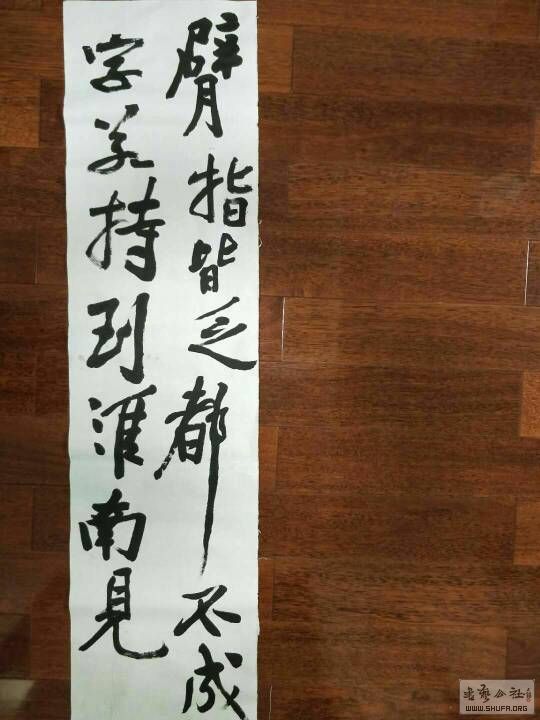 臂指皆乏都不成
字若持到淮南見
书艺公社
WWW.SHUFA.ORG